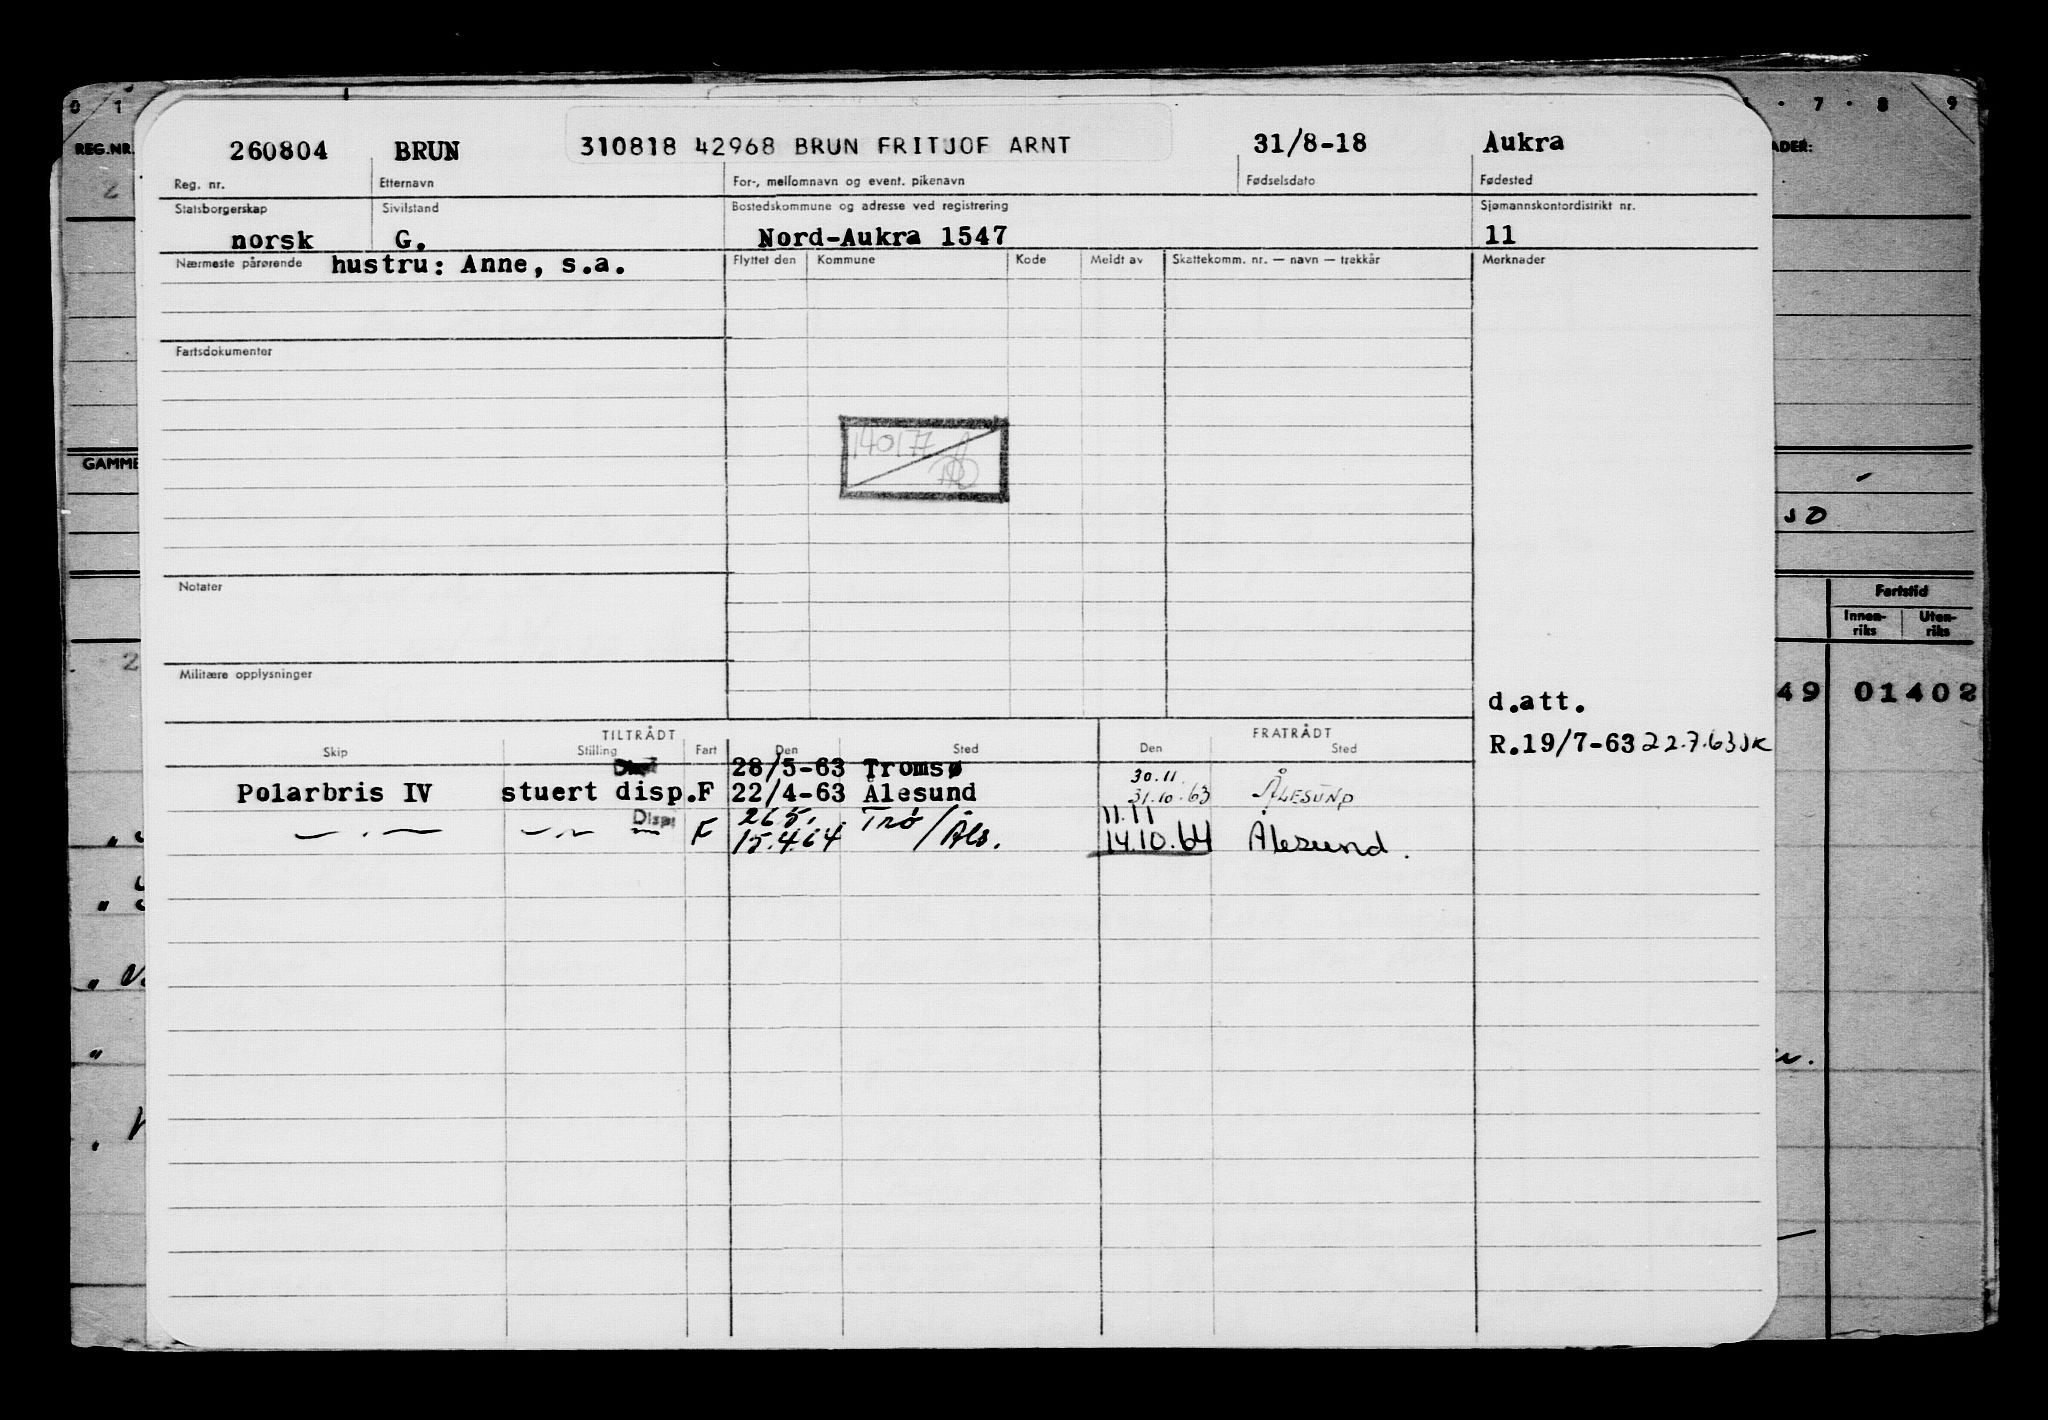 0 1 7 · 8 9
REG.NR.
260804 BRUN 310818 42968 BRUN FRITJOF ARNT 31/8-18 Aukra
Reg. nr. Etternavn For-, mellomnavn og event. pikenavn Fødselsdato Fødested
Statsborgerskap Sivilstand Bostedskommune og adresse ved registrering Sjømannskontordistrikt nr.
norsk G. Nord-Aukra 1547 11
Nærmeste pårørende hustru: Anne, s.a. Flyttet den Kommune Kode Meldt av Skattekomm. nr. — navn — trekkår Merknader
Fartsdokumenter
140177
GAMME
Notater
Fartstid
Innen-riks Uten-riks
Militære opplysninger
49 01402
d.att.
R.19/7-63 22.7.63 JK
TILTRÅDT FRATRÅDT
Skip Stilling Fart Den Sted Den Sted
28/5-63 Tromsø 30.11
Polarbris IV stuert disp. F 22/4-63 Ålesund 31.10.63 ÅLESUND
Disp. 26.5. Trø/Åls. 11.11
— . — — " — F 15.4.64 14.10.64 Ålesund.